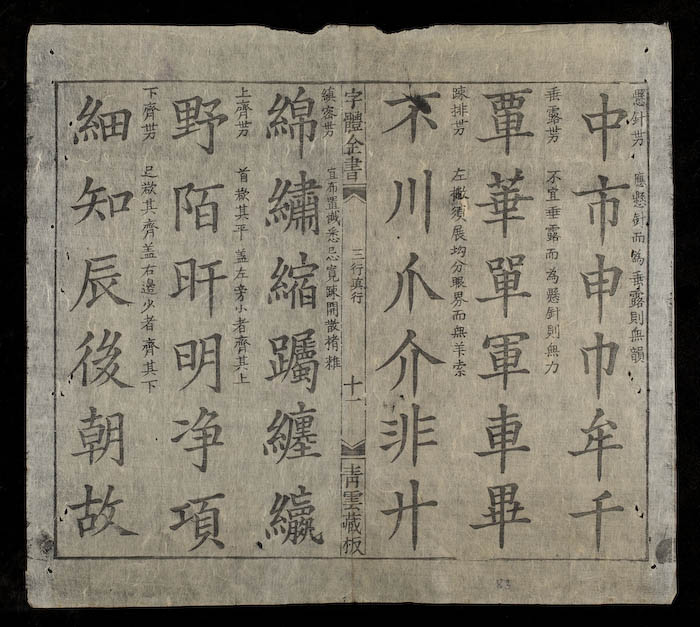 懸針勢 應懸針而為垂露則無韻
中市申巾牟千
垂露勢 不宜垂露而為懸針則無力
覃華單軍車畢
疎排勢 左撇須展均分眼界而無羊索
不川爪介非廾
字體全書 三行真行 十一 青雲藏板
縝密勢 宜布置 悉忌寬疎開散
綿繡縮躅纏纜
上齊勢 首欲其平蓋左旁小者齊其上
野陌旰明净項
下齊勢 足欲其齊盖右邊少者齊其下
細知辰後朝故